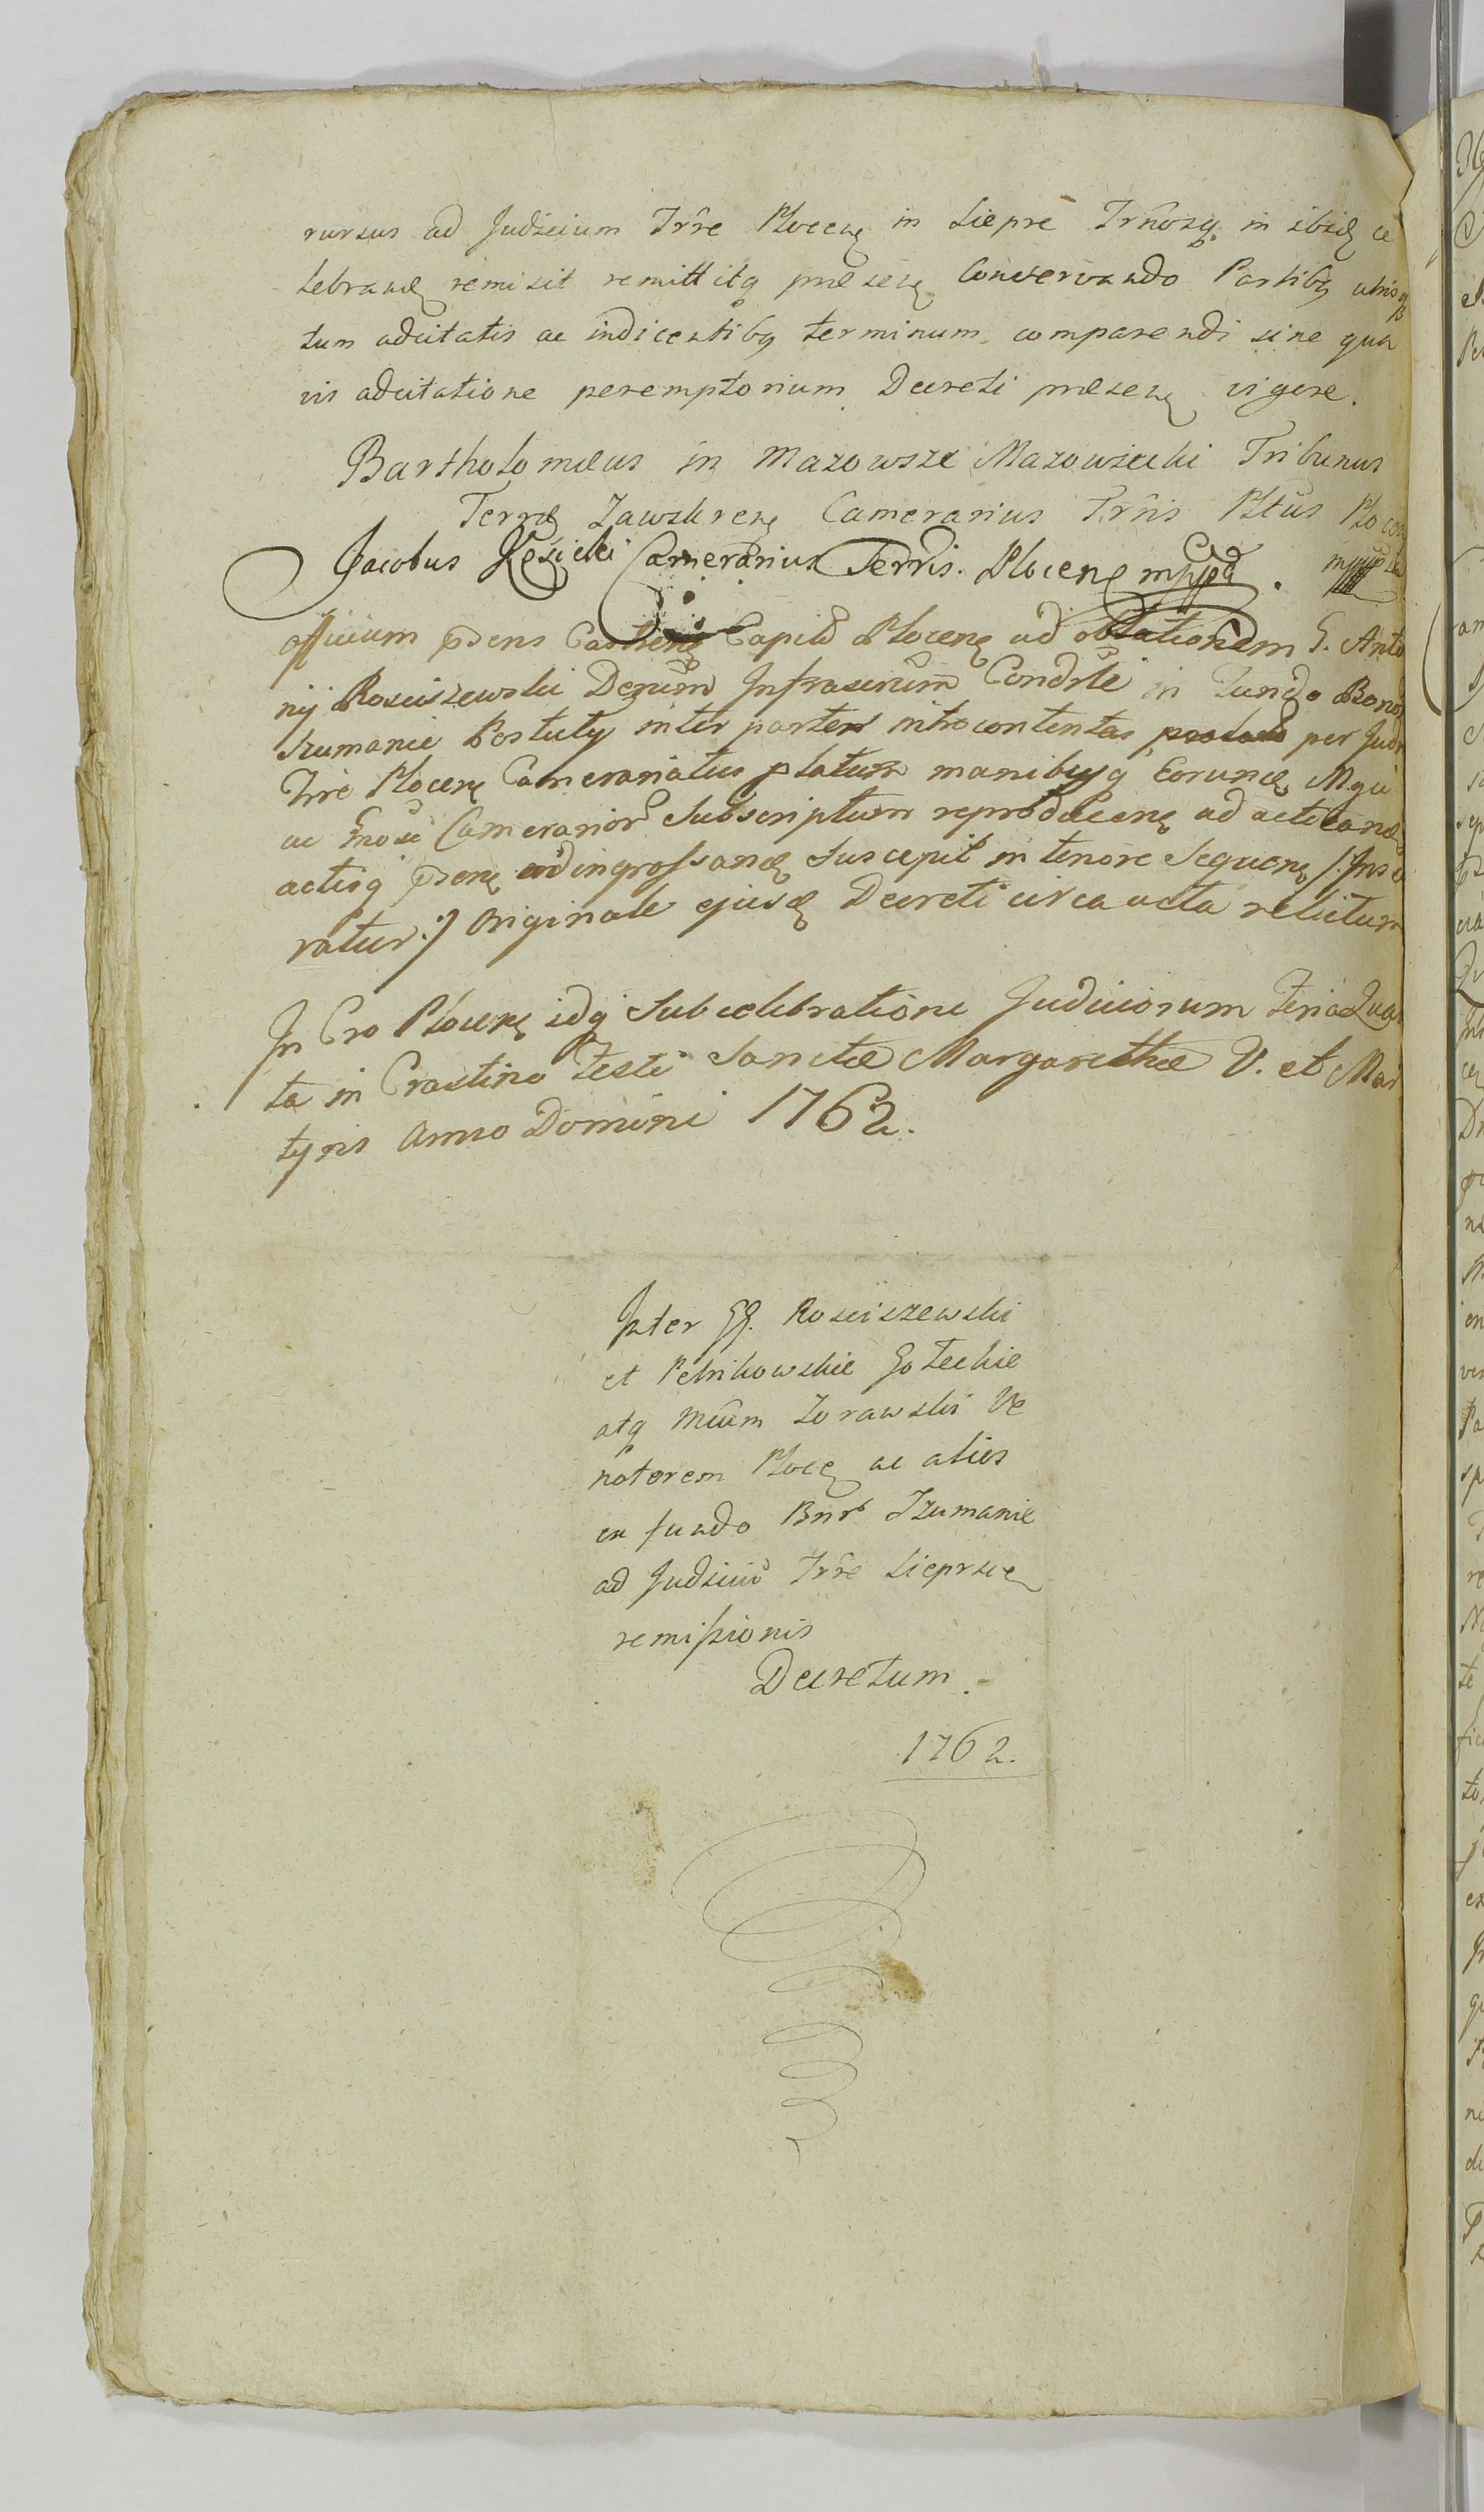 rursus ad Judicium Trre Plocen in Siepre Trnosq in ibid ce
lebrand remisit remittitq præsen Conservando Partibq utrisq
tum adcitatis ac indicentibq terminum comparendi sine qua
vis adcitatione peremptorium Decreti præsen vigere.
Bartholomæus in Mazowsze Mazowiecki Tribunus
Terræ Zawskren Camerarius Trris Pltus Plocen
Jacobus Kęsicki Camerarius Terris. Plocen mppa.
officium pdens Castren Capit Plocen ad oblationem G. Anto
nij Rosciszewski Decium Infrascrium Condrle in Fundo Bonor
Szumanie Postuty inter partes introcontentas per Judi
Trre Plocen Camerariatus platum manibusq Eorund Mgci
ac Gnosi Camerarior Subscriptum reproducen ad acticand
actisq psen adingrossand Suscepit in tenore Sequen /:Inse
ratur:/ Originale ejusd Decreti circa acta relictum
In Cro Plocen idq Sub celebratione Judiciorum Feria Quar
ta in Crastino Festi Sanctæ Margarethæ V. et Mar
tyris Anno Domini 1762.
Inter GG. Rosciszewski
et Petrikowskie Goleckie
atq Mcum Zorawski Ve
natorem Ploce ac alios
ex fundo Bnr Szumanie
ad Judiciu Trre Sieprsce
remissionis
Decretum.
1762.